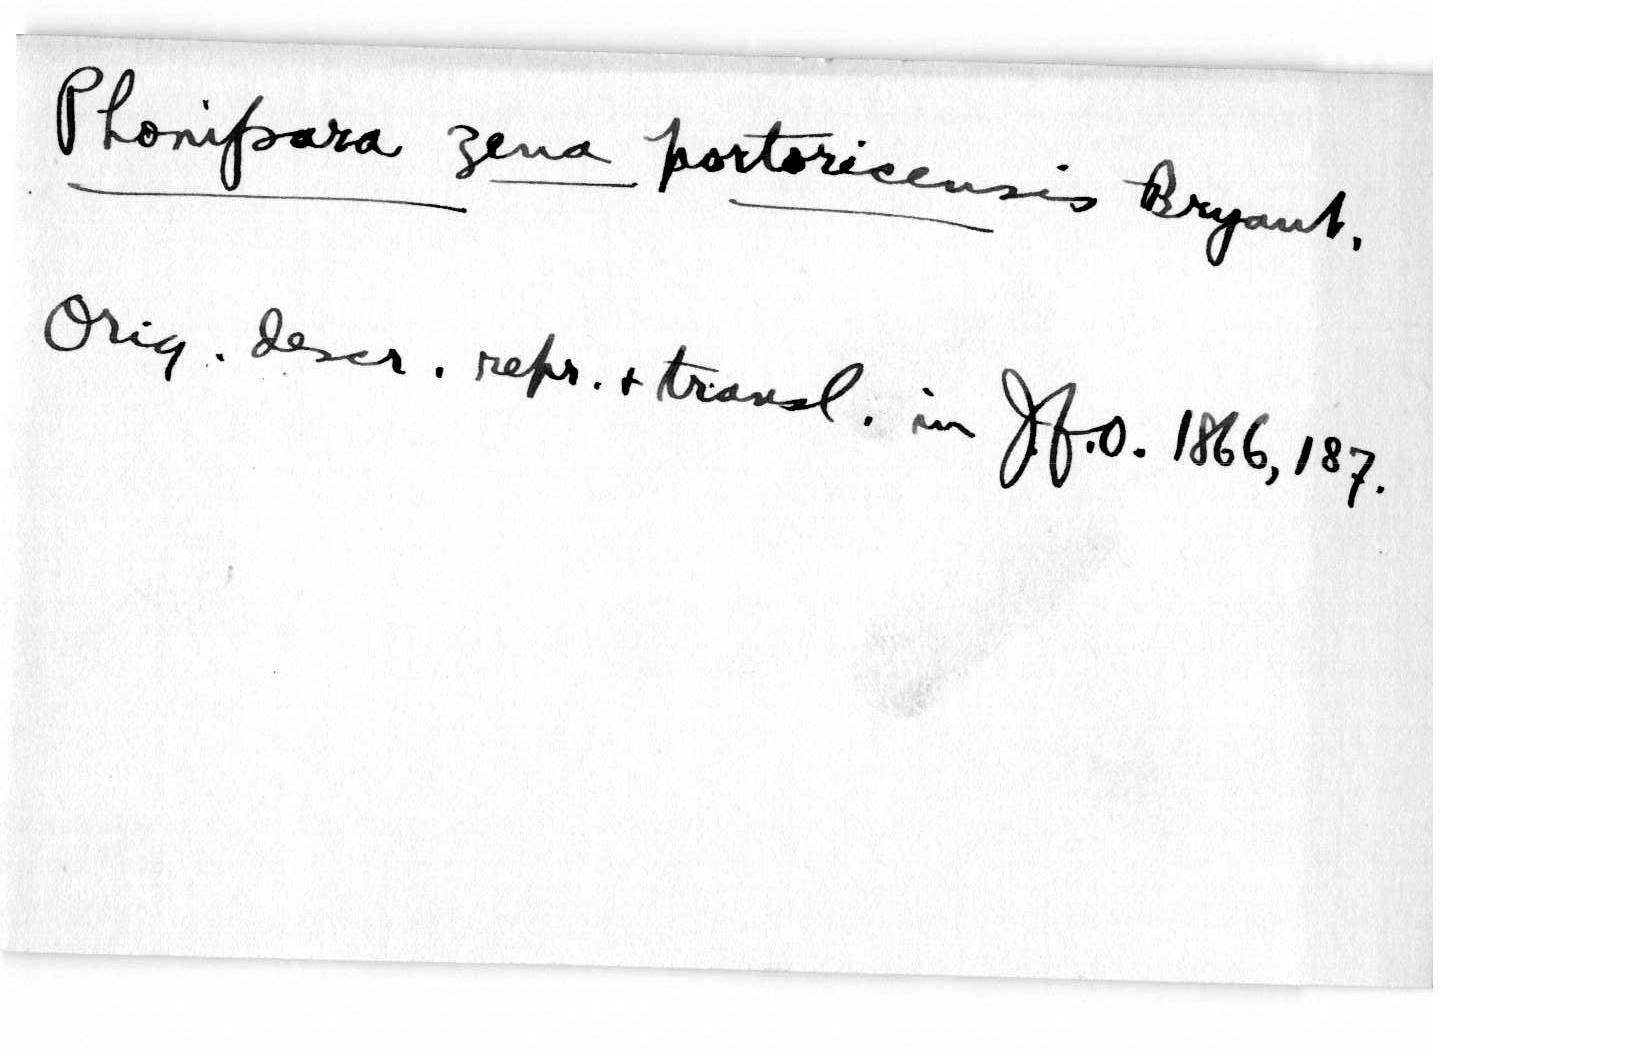 Phonipara zena portoricensis Bryant.
Orig. descr. repr. + transl. in J.f.O. 1866, 187.